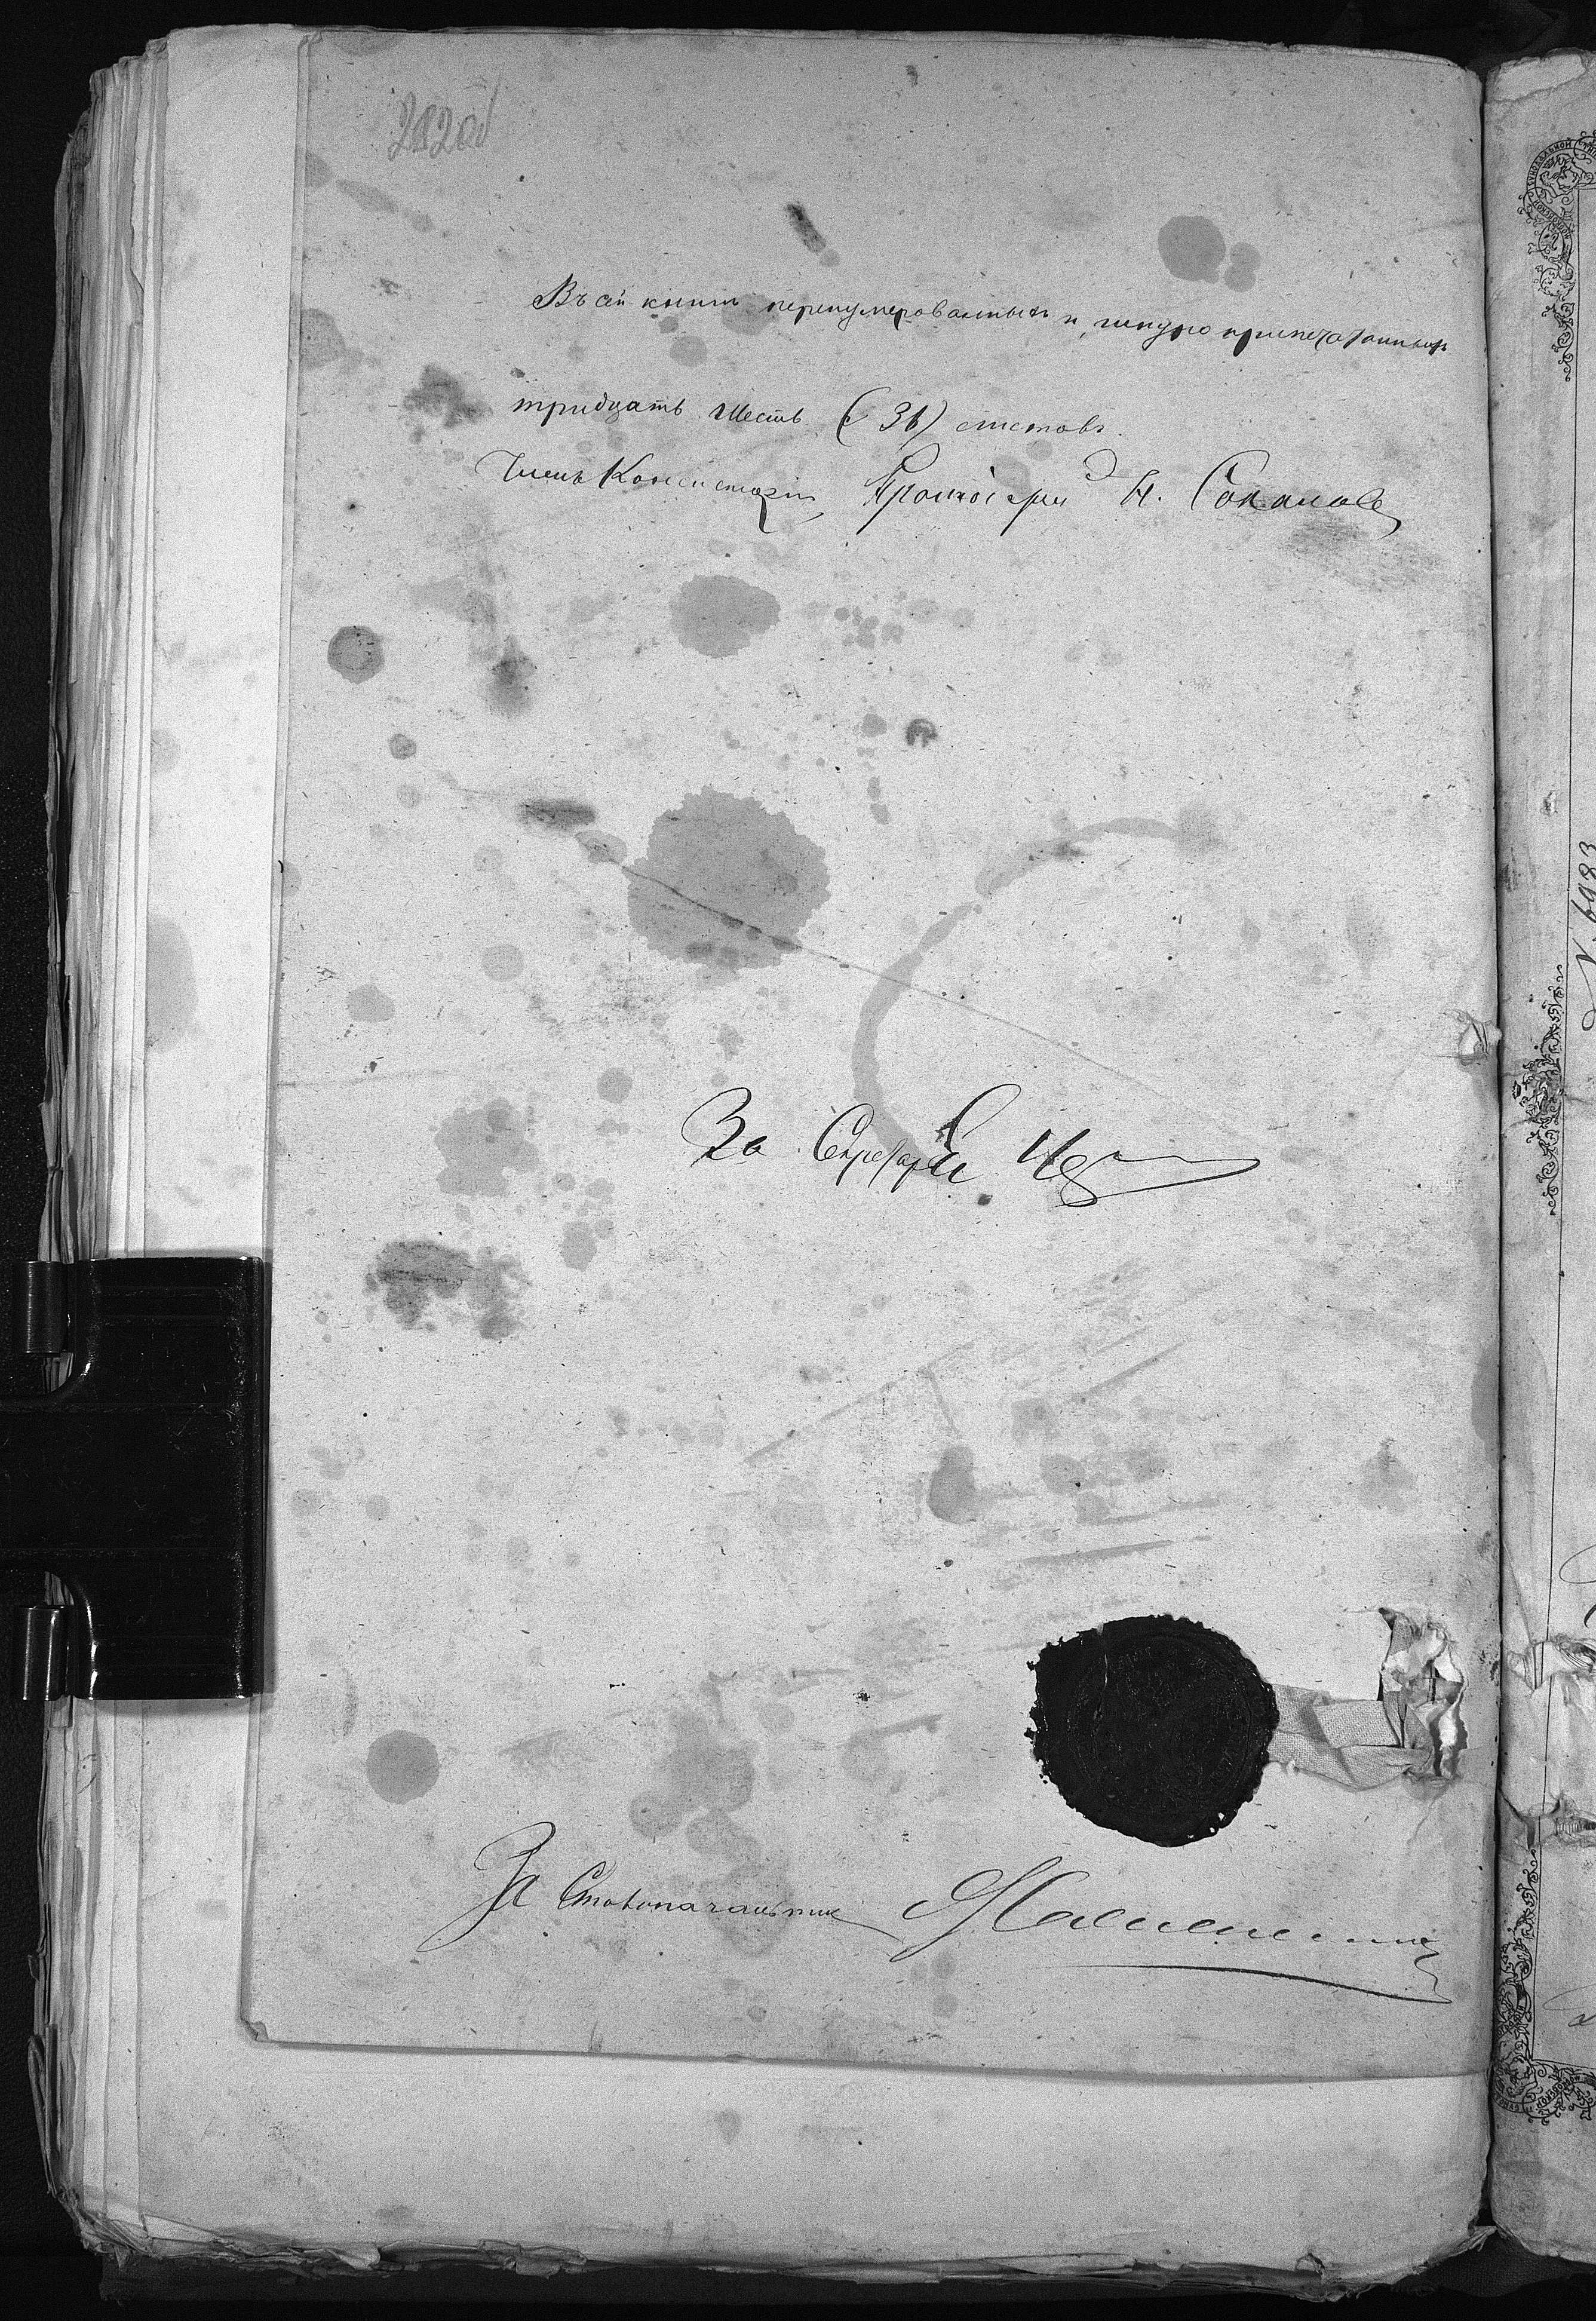 282об
Въ сей книгѣ перенумерованныхъ и шнуро припечатанныхъ
тридцать шесть (36) листовъ.
Членъ Консисторіи, Протоіерей Н. Соколовъ
За Секретаря
За Столоначальника